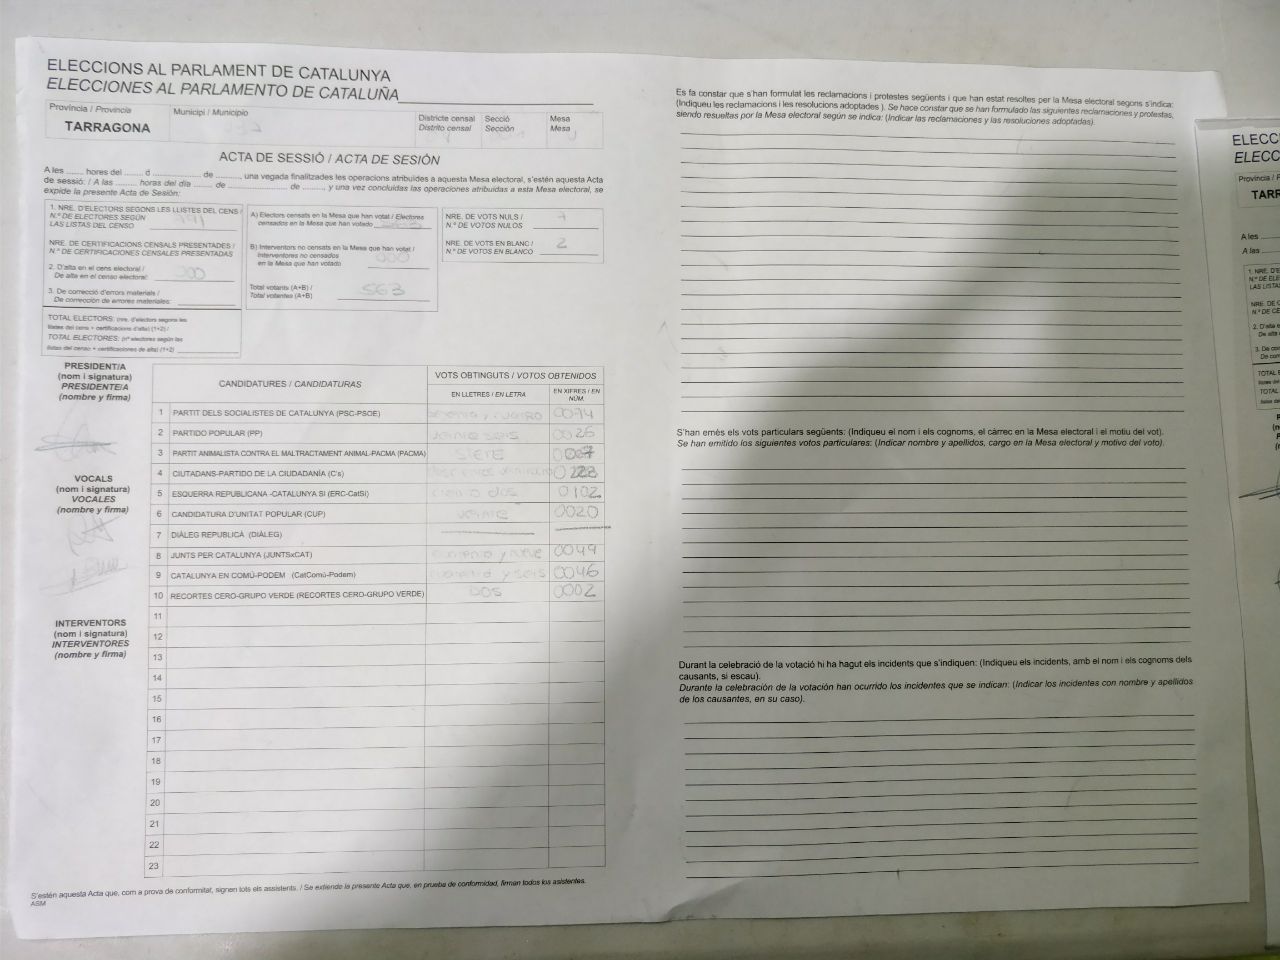 ELECCIONS AL PARLAMENT DE CATALUNYA
ELECCIONES AL PARLAMENTO DE CATALUÑA
Província / Provincia
TARRAGONA
Municipi / Municipio
Districte censal
Distrito censal
Secció
Sección
Mesa
Mesa
ACTA DE SESSIÓ / ACTA DE SESIÓN
A les ........ hores del ........ d .................... de .........., una vegada finalitzades les operacions atribuïdes a aquesta Mesa electoral, s'estén aquesta Acta
de sessió: / A las ......... horas del día ....... de ........................ de ........, y una vez concluidas las operaciones atribuidas a esta Mesa electoral, se
expide la presente Acta de Sesión:
1. NRE. D'ELECTORS SEGONS LES LLISTES DEL CENS /
N.º DE ELECTORES SEGÚN
LAS LISTAS DEL CENSO
NRE. DE CERTIFICACIONS CENSALS PRESENTADES /
N.º DE CERTIFICACIONES CENSALES PRESENTADAS
2. D'alta en el cens electoral /
De alta en el censo electoral: 000
3. De correcció d'errors materials /
De corrección de errores materiales:
TOTAL ELECTORS: (nre. d'electors segons les
llistes del cens + certificacions d'alta) (1+2) /
TOTAL ELECTORES: (nº electores según las
listas del censo + certificaciones de alta) (1+2)
A) Electors censats en la Mesa que han votat / Electores
censados en la Mesa que han votado
B) Interventors no censats en la Mesa que han votat /
Interventores no censados
en la Mesa que han votado 000
Total votants (A+B) /
Total votantes (A+B) 563
NRE. DE VOTS NULS /
N.º DE VOTOS NULOS
NRE. DE VOTS EN BLANC /
N.º DE VOTOS EN BLANCO 2
PRESIDENT/A
(nom i signatura)
PRESIDENTE/A
(nombre y firma)
VOCALS
(nom i signatura)
VOCALES
(nombre y firma)
INTERVENTORS
(nom i signatura)
INTERVENTORES
(nombre y firma)
CANDIDATURES / CANDIDATURAS
VOTS OBTINGUTS / VOTOS OBTENIDOS
EN LLETRES / EN LETRA
EN XIFRES / EN NÚM.
1 PARTIT DELS SOCIALISTES DE CATALUNYA (PSC-PSOE) 0074
2 PARTIDO POPULAR (PP) 0026
3 PARTIT ANIMALISTA CONTRA EL MALTRACTAMENT ANIMAL-PACMA (PACMA) SIETE 0007
4 CIUTADANS-PARTIDO DE LA CIUDADANÍA (C's)
5 ESQUERRA REPUBLICANA -CATALUNYA SÍ (ERC-CatSí) ciento dos 0102
6 CANDIDATURA D'UNITAT POPULAR (CUP) VEINTE 0020
7 DIÀLEG REPUBLICÀ (DIÀLEG)
8 JUNTS PER CATALUNYA (JUNTSxCAT) 0049
9 CATALUNYA EN COMÚ-PODEM (CatComú-Podem) 0046
10 RECORTES CERO-GRUPO VERDE (RECORTES CERO-GRUPO VERDE) DOS 0002
11
12
13
14
15
16
17
18
19
20
21
22
23
S'estén aquesta Acta que, com a prova de conformitat, signen tots els assistents. / Se extiende la presente Acta que, en prueba de conformidad, firman todos los asistentes.
ASM
Es fa constar que s'han formulat les reclamacions i protestes següents i que han estat resoltes per la Mesa electoral segons s'indica:
(Indiqueu les reclamacions i les resolucions adoptades ). Se hace constar que se han formulado las siguientes reclamaciones y protestas,
siendo resueltas por la Mesa electoral según se indica: (Indicar las reclamaciones y las resoluciones adoptadas).
S'han emès els vots particulars següents: (Indiqueu el nom i els cognoms, el càrrec en la Mesa electoral i el motiu del vot).
Se han emitido los siguientes votos particulares: (Indicar nombre y apellidos, cargo en la Mesa electoral y motivo del voto).
Durant la celebració de la votació hi ha hagut els incidents que s'indiquen: (Indiqueu els incidents, amb el nom i els cognoms dels
causants, si escau).
Durante la celebración de la votación han ocurrido los incidentes que se indican: (Indicar los incidentes con nombre y apellidos
de los causantes, en su caso).